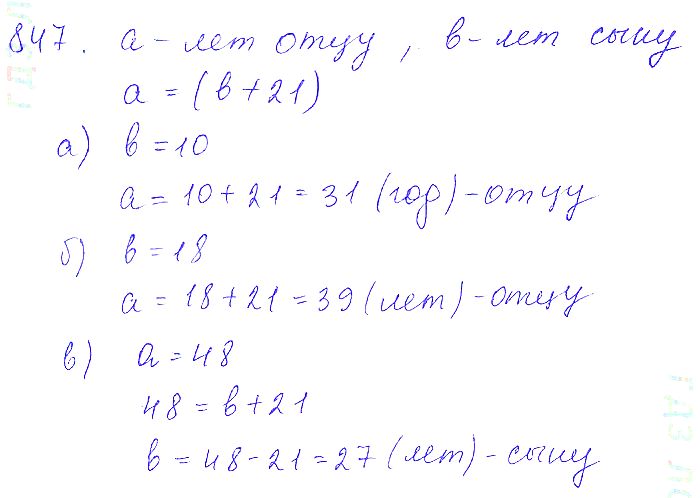 847. а – лет отцу, в – лет сыну
а = (в + 21)
а) в = 10
а = 10 + 21 = 31 (год) – отцу
б) в = 18
а = 18 + 21 = 39 (лет) – отцу
в) а = 48
48 = в + 21
в = 48 - 21 = 27 (лет) – сыну